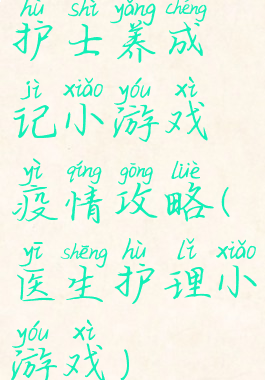 hù shì yǎng chéng
护士养成
jì xiǎo yóu xì
记小游戏
yì qíng gōng lüè
疫情攻略(
yī shēng hù lǐ xiǎo
医生护理小
yóu xì
游戏)